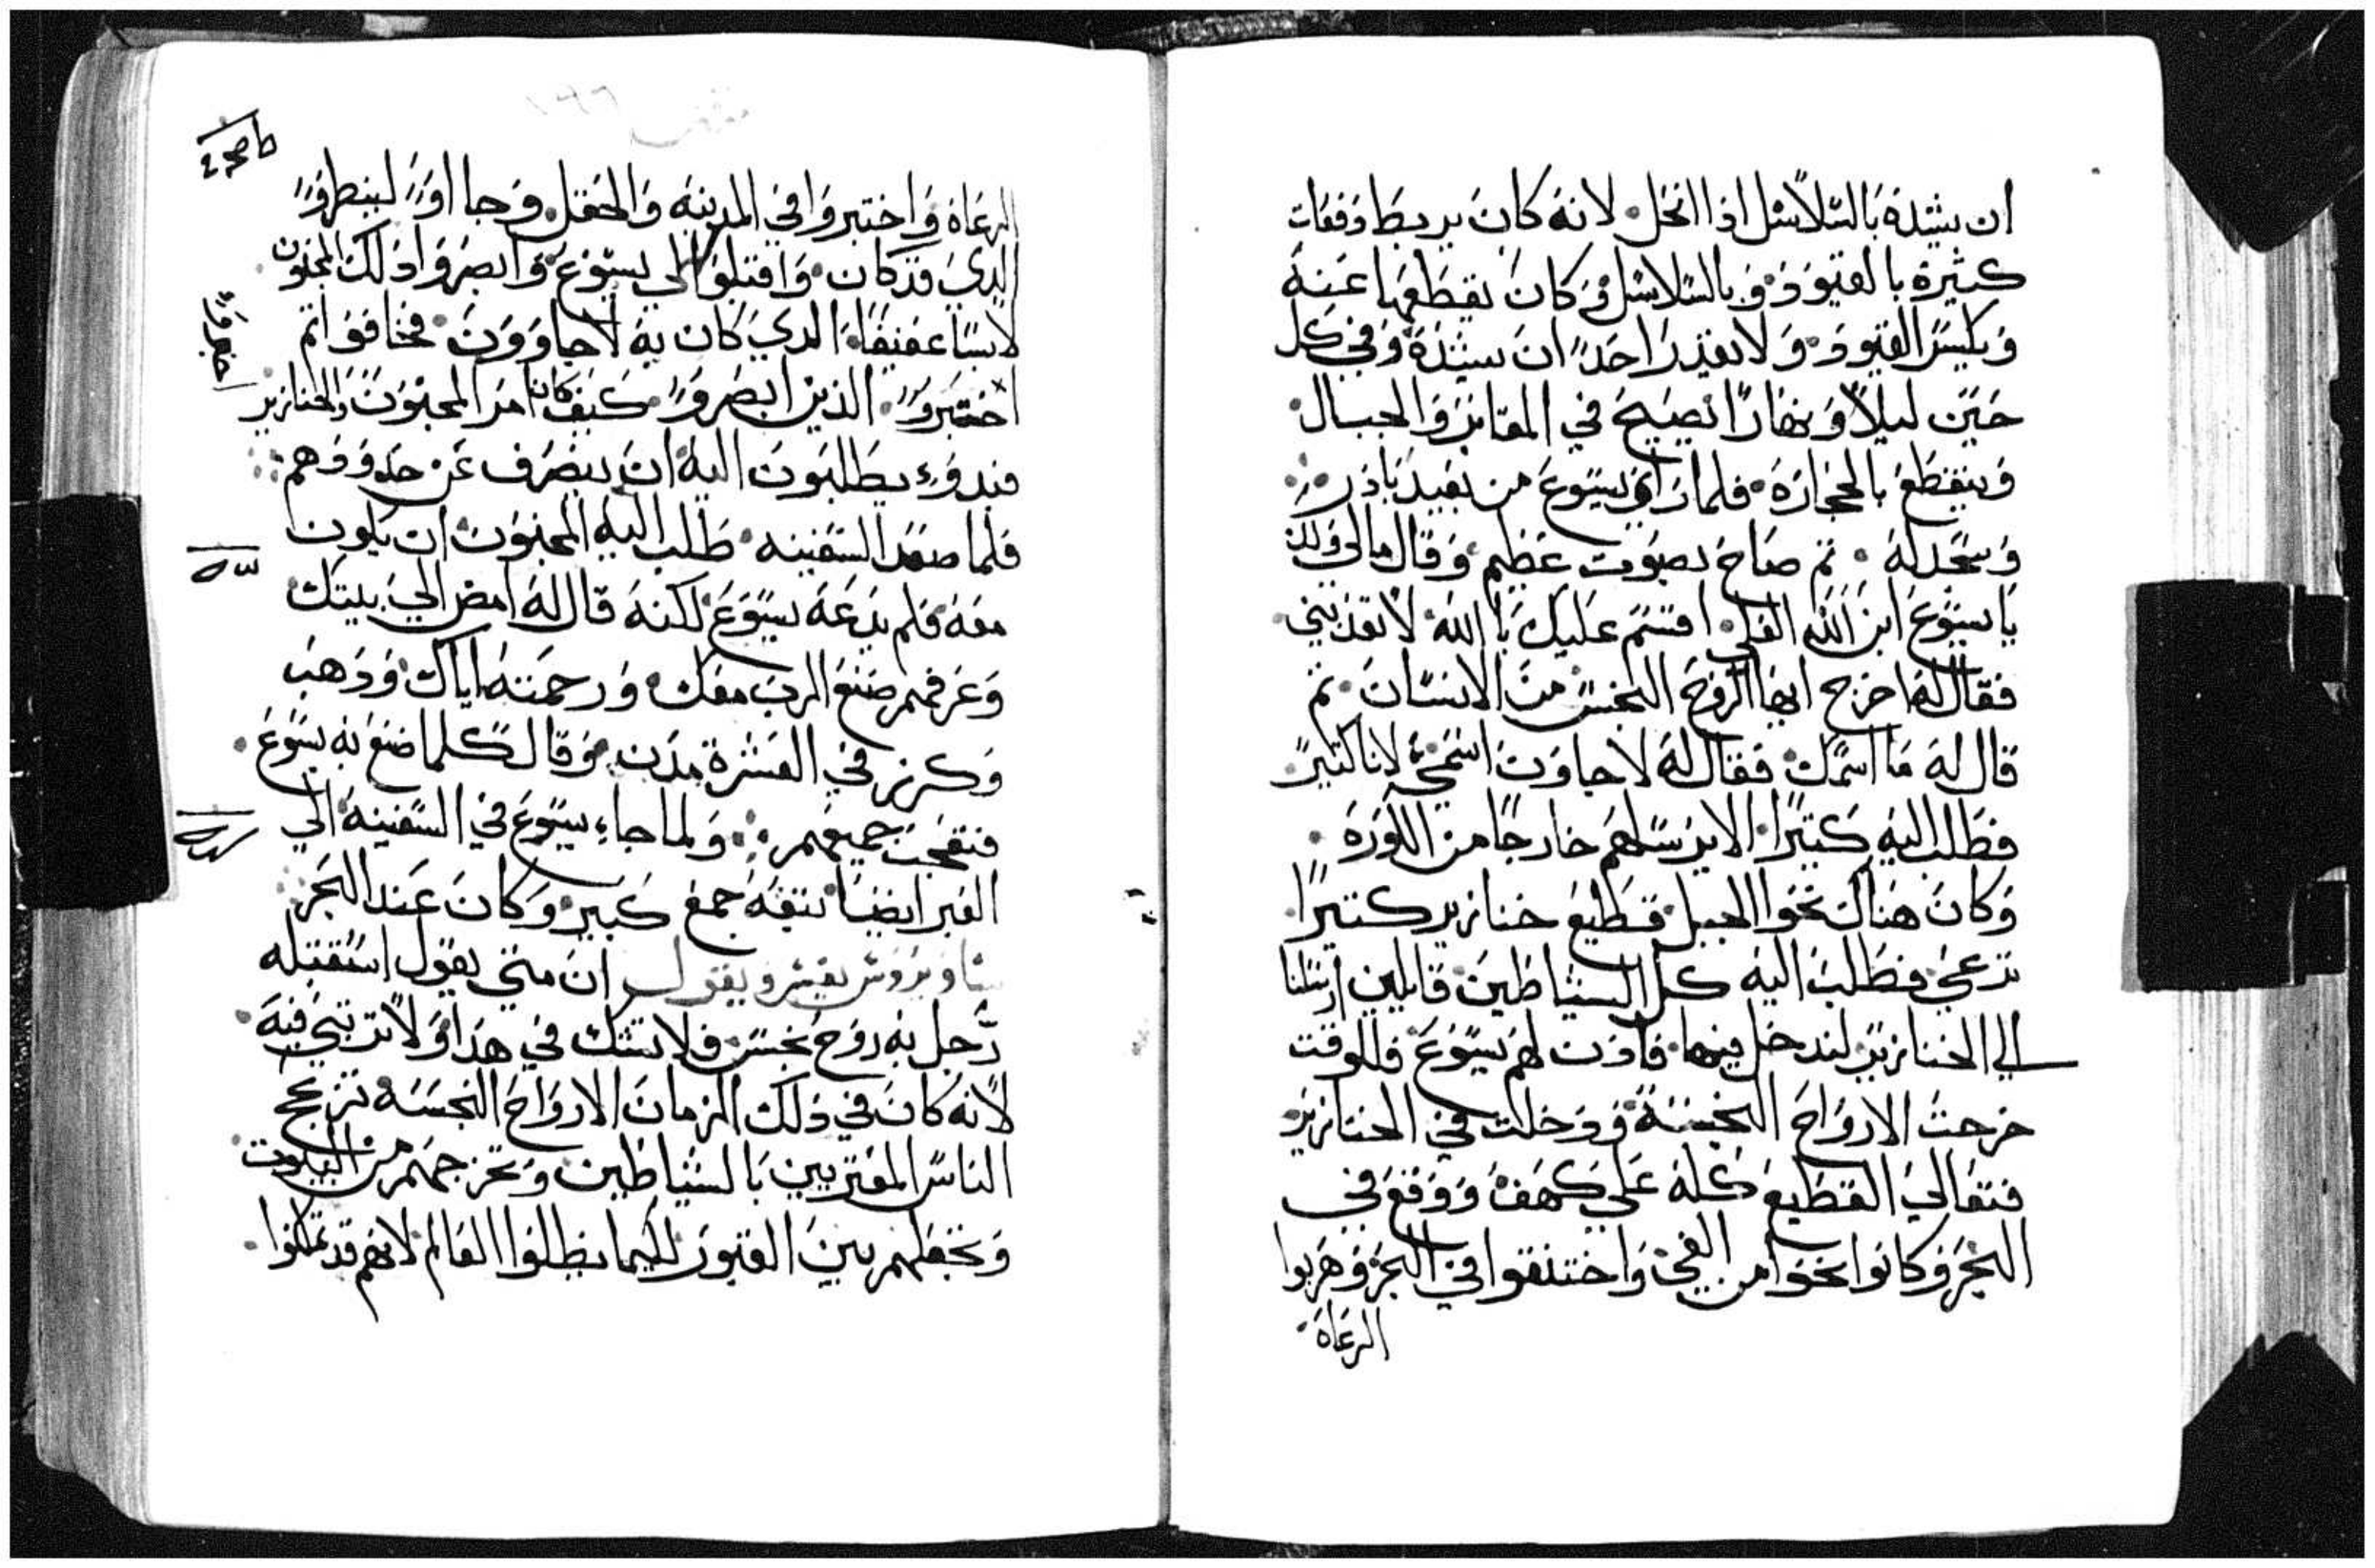 ان يشده بالسلاسل اذا انحل لانه كان يربط دفعات
كثيرة بالقيود وبالسلاسل وكان يقطعها عنه
ويكسر القيود ولا يقدر احدا ان يشده وفي كل
حين ليلا ونهارا يصيح في المقابر والجبال
وينقطع بالحجارة فلما راي يسوع من بعيد بادر
وسجد له ثم صاح بصوت عظيم وقال مالي ولك
يا يسوع ابن الله العلي اقسم عليك بالله لا تعذبني
فقال له اخرج ايها الروح النجس من الانسان ثم
قال له ما اسمك فقال له لاجاون اسمي لانا كثير
فطلب اليه كثيرا الا يرسلهم خارجا من الكورة
وكان هناك نحو الجبل قطيع خنازير كثيرا
ترعي فطلب اليه كل الشياطين قايلين ارسلنا
الي الخنازير لندخل فيها فاذن لهم يسوع فللوقت
خرجت الارواح النجسة ودخلت في الخنازير
فتعالي القطيع كله علي كهف ووقع في
البحر وكانوا نحوا من الفي واختنقوا في البحر وهربوا
الرعاة
الرعاة واخبروا في المدينه والحقل وجااوا لينظروا
الدي قد كان واقبلوا الي يسوع وابصروا ذلك المجنون
لابسا عفيفا الدي كان به لاجاوون فخافوا ثم
اخبروا الذين ابصروا كيف كان امر المجنون والخنازير
فبدوء يطلبون اليه ان ينصرف عن حدودهم
فلما صعد السفينه طلب اليه المجنون ان يكون
معه فلم يدعه يسوع لكنه قال له امض الي بيتك
وعرفهم صنع الرب معك ورحمته اياك وذهب
وكرز في العشرة مدن وقال كلما صنع به يسوع
فتعجب جميعهم ولما جاء يسوع في السفينه الي
العبر ايضا تبعه جمع كبير وكان عند البحر
يفسر ويقول ان متي يقول استقبله
رجل به روح نجس فلا تشك في هذا ولا ترتبي فيه
لانه كان في ذلك الزمان الارواح النجسه تزعج
الناس المقتربين بالشياطين وتخرجهم من البيوت
وتجعلهم بين القبور لكيما يظلوا العالم لانهم قد تملكوا